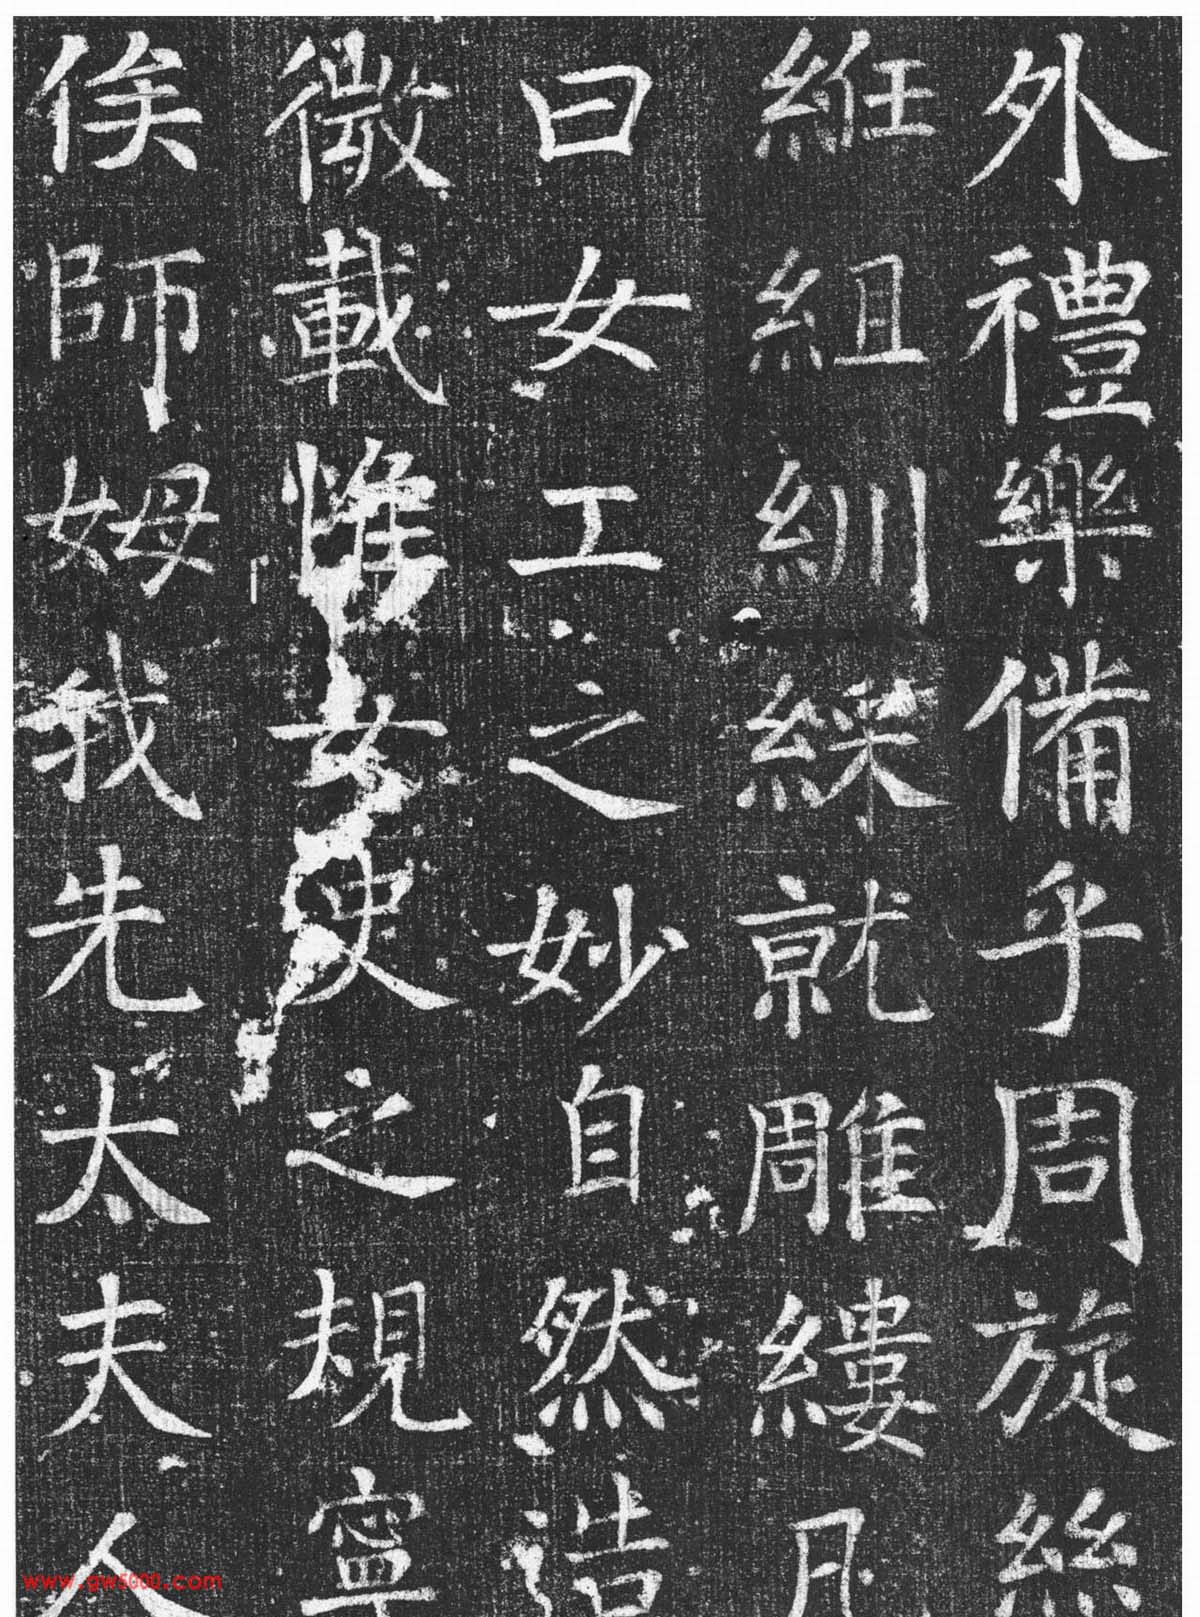 外禮樂備乎周旋絲
紝組紃綵就雕縷凡
曰女工之妙自然造
微載惟女史之規寧
俟師姆我先太夫人
www.gw5000.com